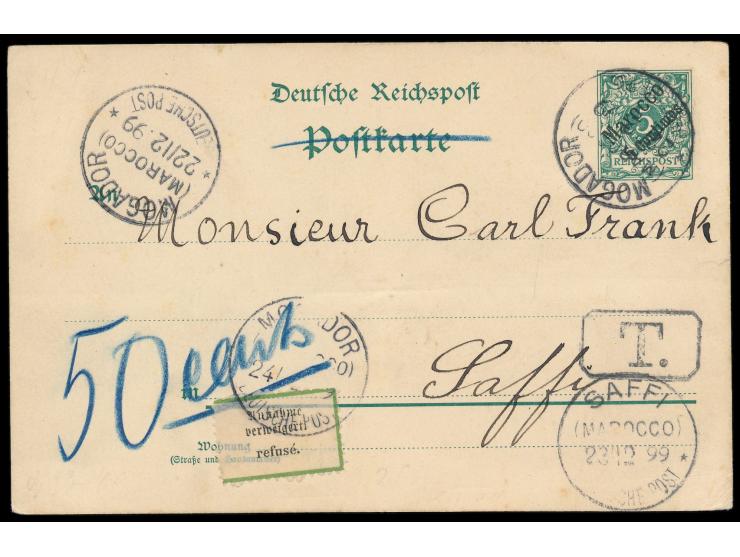 Deutsche Reichspost
Postkarte
MOGADOR
(MAROCCO)
22/12.99
* DEUTSCHE POST *
5
Marocco
5 Centimos
REICHSPOST
MOGADOR
An
Monsieur Carl Frank
50 cents
MOGADOR
24/
DEUTSCHE POST
T.
in
Saffi
SAFFI
(MAROCCO)
23/12 99
DEUTSCHE POST *
Annahme
verweigert
refusé.
Wohnung
(Straße und Hausnummer)